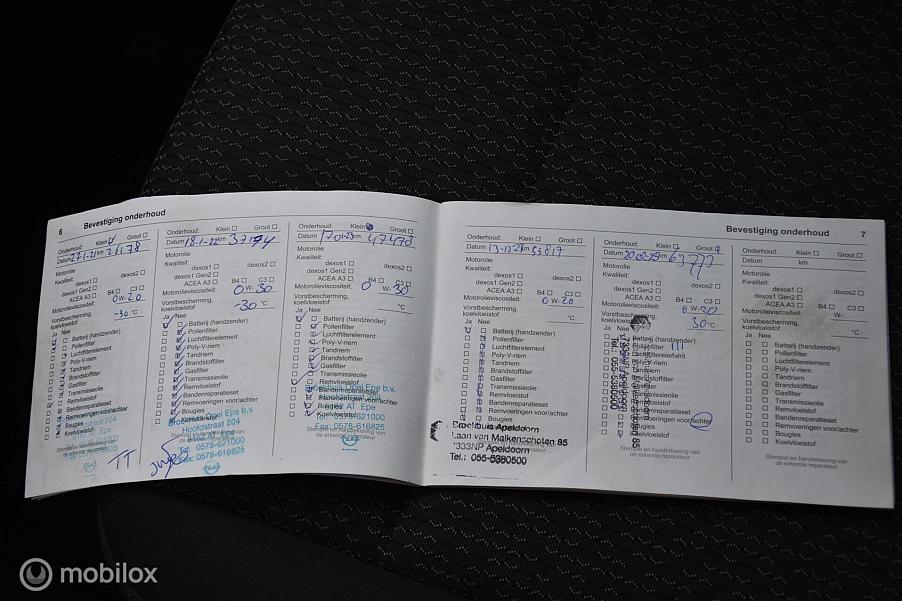 6
Bevestiging onderhoud
Onderhoud: Klein Groot
Datum 27-1-21 km 26178
Motorolie
Kwaliteit:
dexos1 dexos2
dexos1 Gen2
ACEA A3 B4 C3
Motorolieviscositeit: 0 W- 20
Vorstbescherming,
koelvloeistof -30 °C
Ja Nee
Batterij (handzender)
Pollenfilter
Luchtfilterelement
Poly-V-riem
Tandriem
Brandstoffilter
Gasfilter
Transmissieolie
Remvloeistof
Bandenreparatieset
Remvoeringen voor/achter
Bougies
Koelvloeistof
TT
Onderhoud: Klein Groot
Datum 18-1-22 km 37174
Motorolie
Kwaliteit:
dexos1 dexos2
dexos1 Gen2
ACEA A3 B4 C3
Motorolieviscositeit: 0 W- 30
Vorstbescherming,
koelvloeistof -30 °C
Ja Nee
Batterij (handzender)
Pollenfilter
Luchtfilterelement
Poly-V-riem
Tandriem
Brandstoffilter
Gasfilter
Transmissieolie
Remvloeistof
Bandenreparatieset
Remvoeringen voor/achter
Bougies
Koelvloeistof
Broekhuis Opel Epe b.v.
Hoofdstraat 204
8162 AT Epe
Tel: 0578-621000
Fax: 0578-616825
Onderhoud: Klein Groot
Datum km 47478
Motorolie
Kwaliteit:
dexos1 dexos2
dexos1 Gen2
ACEA A3 B4 C3
Motorolieviscositeit: 0 W- 30
Vorstbescherming,
koelvloeistof °C
Ja Nee
Batterij (handzender)
Pollenfilter
Luchtfilterelement
Poly-V-riem
Tandriem
Brandstoffilter
Gasfilter
Transmissieolie
Remvloeistof
Bandenreparatieset
Remvoeringen voor/achter
Bougies
Koelvloeistof
Broekhuis Opel Epe b.v.
8162 AT Epe
Tel: 0578-621000
Fax: 0578-616825
Bevestiging onderhoud
7
Onderhoud: Klein Groot
Datum 13-12-23 km 55817
Motorolie
Kwaliteit:
dexos1 dexos2
dexos1 Gen2
ACEA A3 B4 C3
Motorolieviscositeit: 0 W- 20
Vorstbescherming,
koelvloeistof °C
Ja Nee
Batterij (handzender)
Pollenfilter
Luchtfilterelement
Poly-V-riem
Tandriem
Brandstoffilter
Gasfilter
Transmissieolie
Remvloeistof
Bandenreparatieset
Remvoeringen voor/achter
Bougies
Koelvloeistof
Broekhuis Apeldoorn
Laan van Malkenschoten 85
7333NP Apeldoorn
Tel.: 055-5380500
Onderhoud: Klein Groot
Datum km 63777
Motorolie
Kwaliteit:
dexos1 dexos2
dexos1 Gen2
ACEA A3 B4 C3
Motorolieviscositeit: 0 W- 20
Vorstbescherming,
koelvloeistof 30 °C
Ja Nee
Batterij (handzender)
Pollenfilter
Luchtfilterelement
Poly-V-riem
Tandriem
Brandstoffilter
Gasfilter
Transmissieolie
Remvloeistof
Bandenreparatieset
Remvoeringen voor/achter
Bougies
Koelvloeistof
Tel.: 055-5380500
Onderhoud: Klein Groot
Datum km
Motorolie
Kwaliteit:
dexos1 dexos2
dexos1 Gen2
ACEA A3 B4 C3
Motorolieviscositeit: W-
Vorstbescherming,
koelvloeistof °C
Ja Nee
Batterij (handzender)
Pollenfilter
Luchtfilterelement
Poly-V-riem
Tandriem
Brandstoffilter
Gasfilter
Transmissieolie
Remvloeistof
Bandenreparatieset
Remvoeringen voor/achter
Bougies
Koelvloeistof
Stempel en handtekening van
de erkende reparateur
mobilox